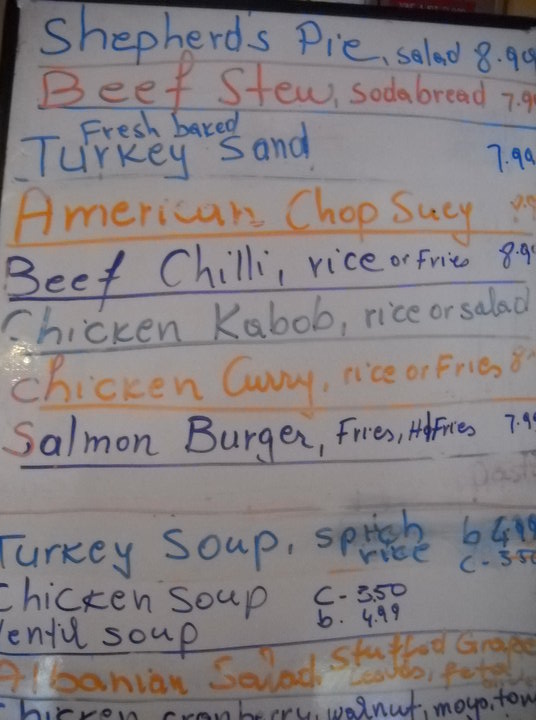 Shepherd's Pie, salad 8.99
Beef Stew, sodabread 7.9
Fresh baked
Turkey Sand 7.99
American Chop Suey
Beef Chilli, rice or Fries 8.9
Chicken Kabob, rice or salad
Chicken Curry, rice or Fries 8
Salmon Burger, Fries, HFries 7.9
past
Turkey Soup, rice b 4.99
c - 3.50
Chicken Soup c - 3.50
Lentil soup b. 4.99
Albanian Salad, Stuffed Grape
Leaves, feta
Chicken, cranberry, walnut, mayo, tom